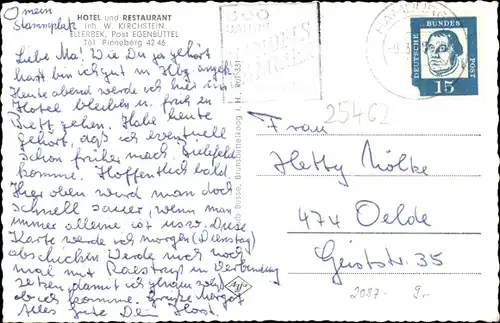 O mein
Stammplatz
HOTEL und RESTAURANT
Inh. W. KIRCHSTEIN
ELLERBEK, Post EGENBÜTTEL
Tel. Pinneberg 42 46
Liebe Ma! Wie Du ja gehört
hast bin ich gut in Hbg. angek.
Heute abend werde ich hier ins
Hotel bleiben u. früh zu
Bett gehen. Habe heute
gehört, daß ich eventuell
schon früher nach Bielefeld
komme. Hoffentlich bald.
Hier oben wird man doch
schnell sauer, wenn man
immer alleine ist usw. Diese
Karte werde ich morgen (Dienstag)
abschicken. Werde mich noch
mal mit Raestrup in Verbindung
setzen, damit ich genau
ob ich komme. Grüße
Alles Gute Dein Horst.
HAMBURG
DEUTSCHE BUNDES POST
15
25462
Frau
Hetty Mölke
474 Oelde
Geiststr. 35
2087
9.-